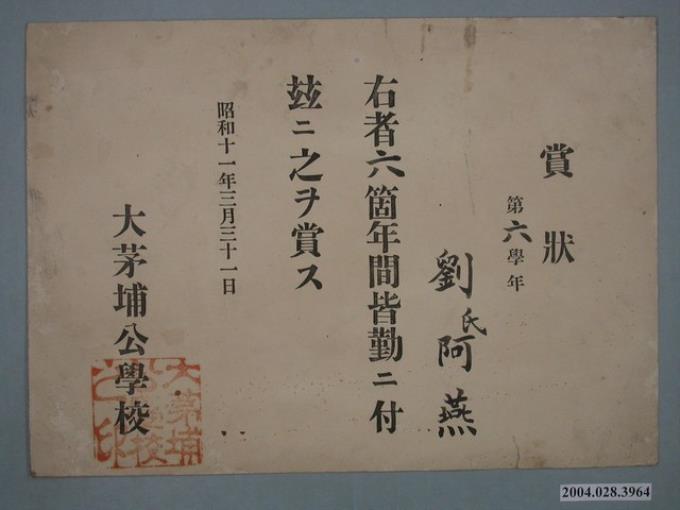 賞狀
第六學年
劉氏阿燕
右者六箇年間皆勤ニ付
玆ニ之ヲ賞ス
昭和十一年三月三十一日
大茅埔公學校
大茅埔
公學校
之印
2004.028.3964